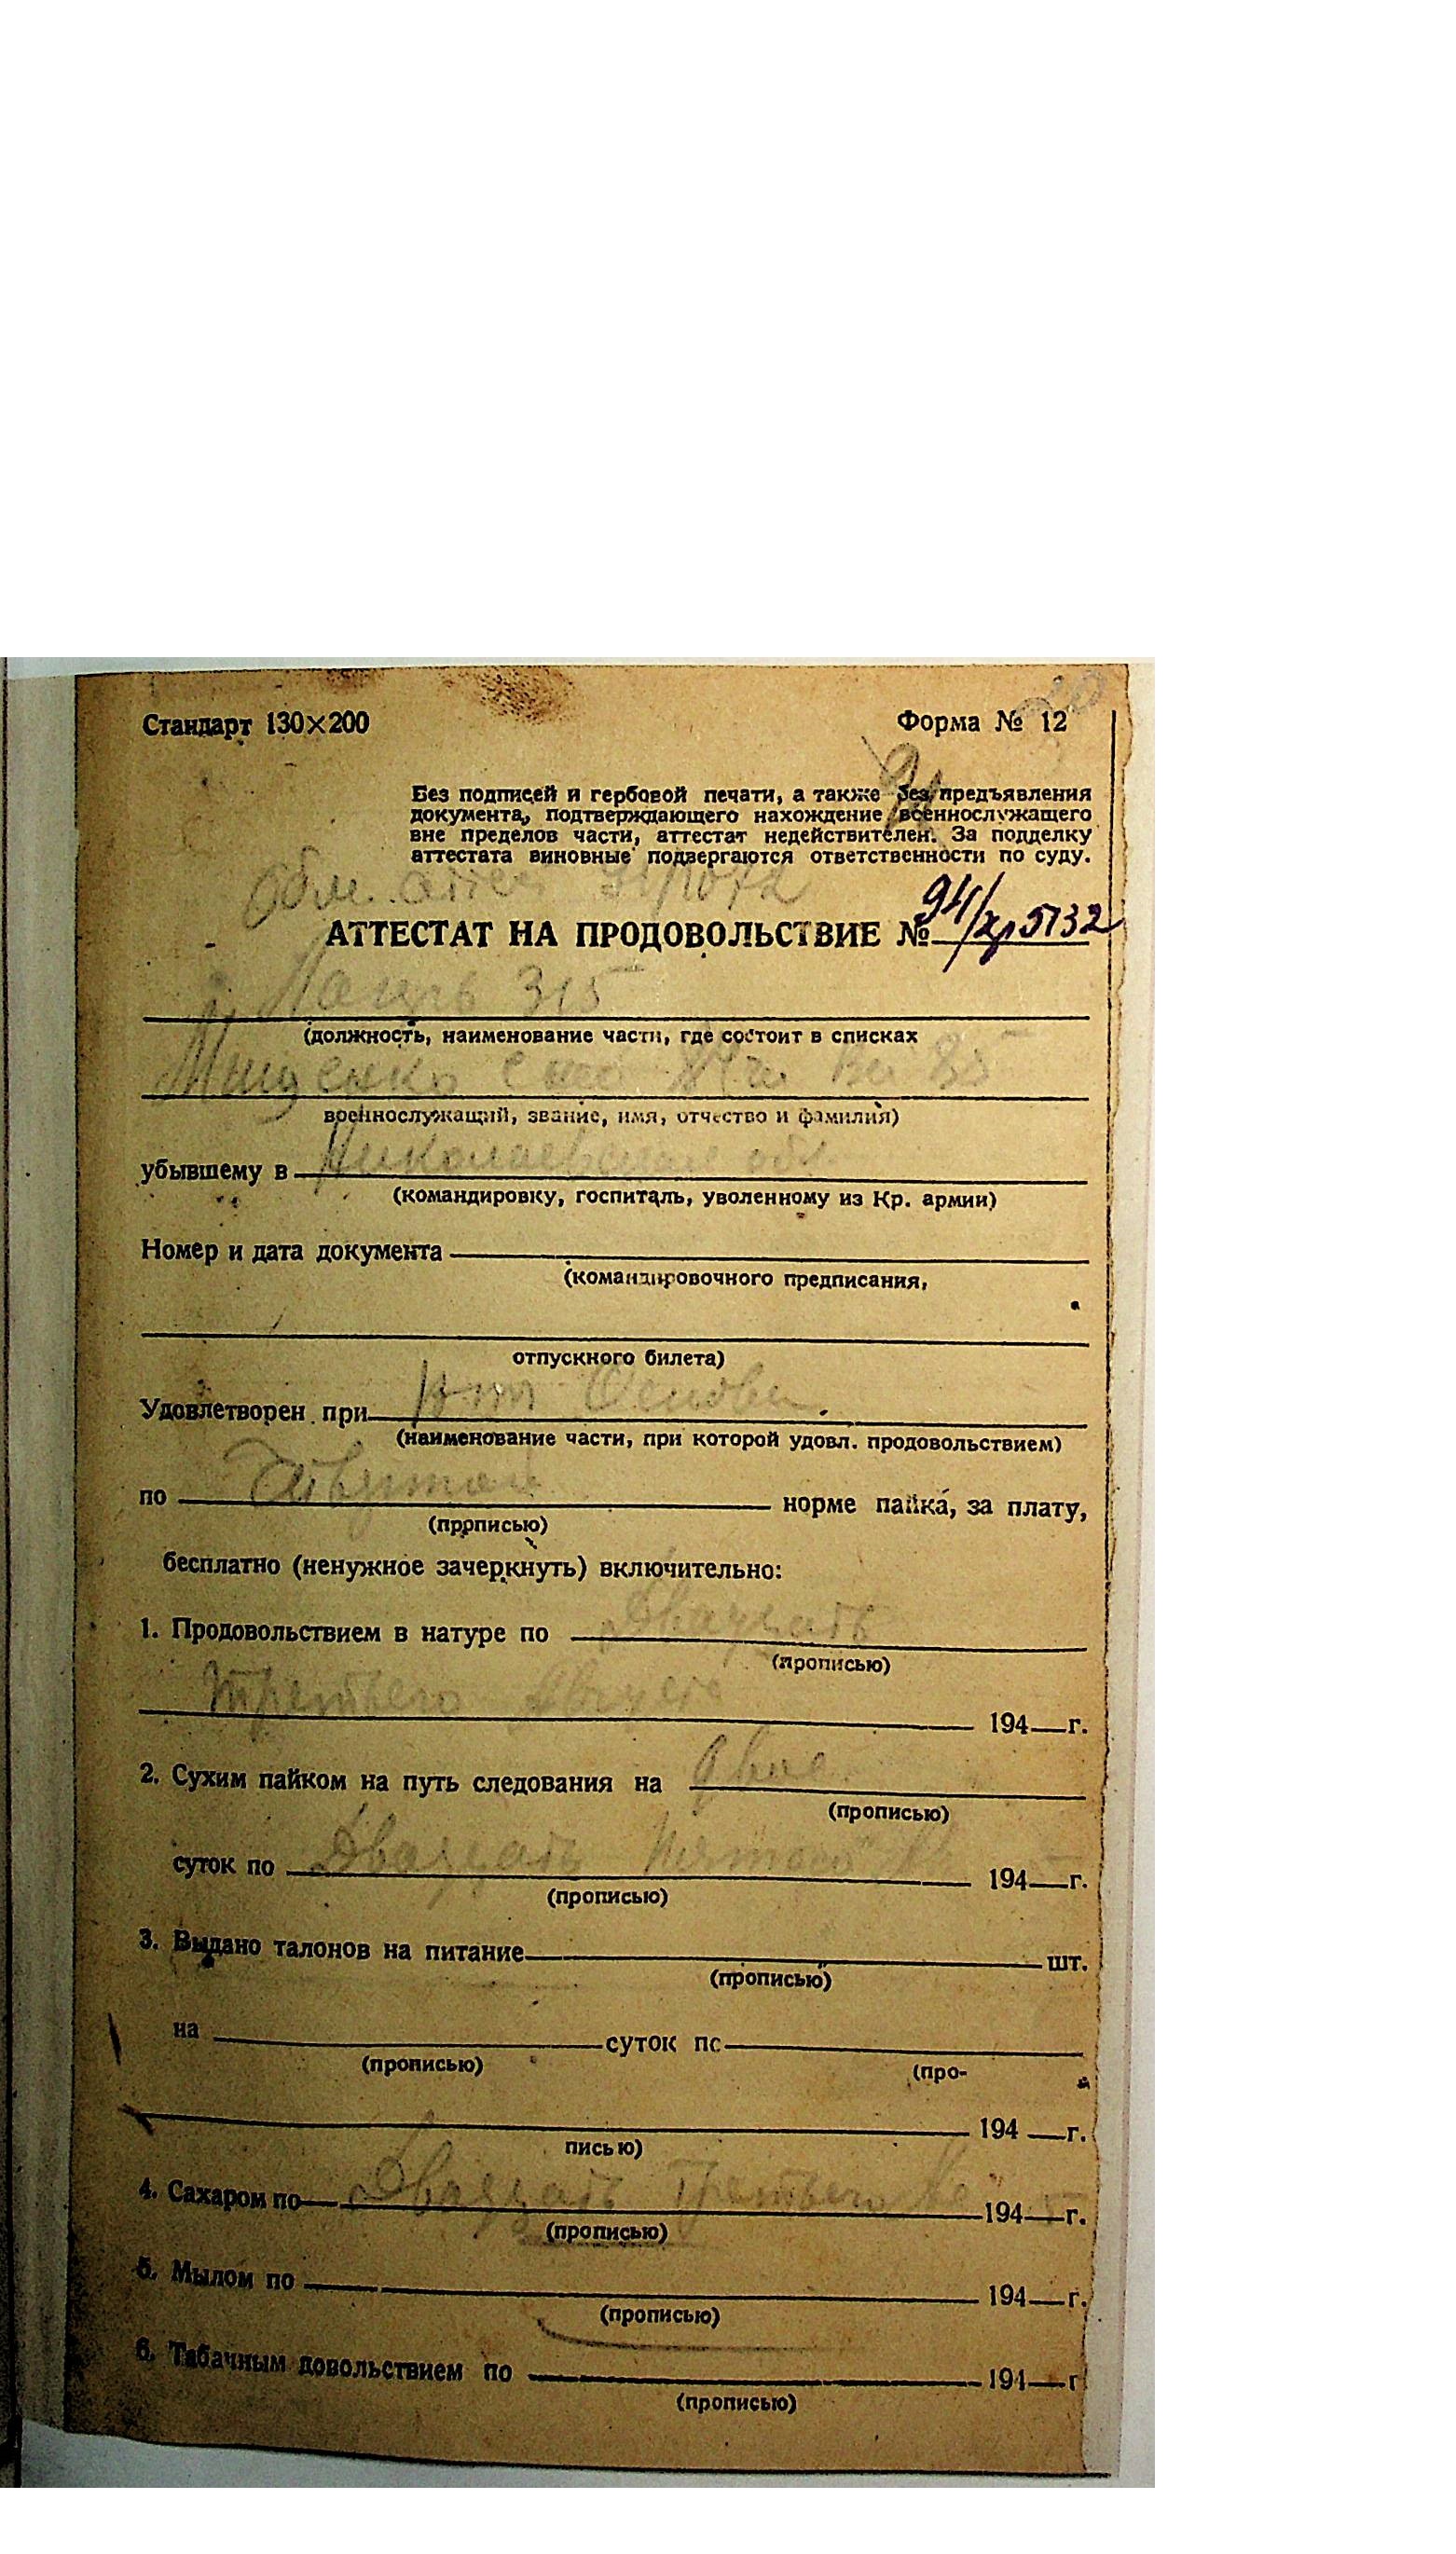 Стандарт 130×200
Форма № 12
Без подписей и гербовой печати, а также без предъявления
документа, подтверждающего нахождение военнослужащего
вне пределов части, аттестат недействителен. За подделку
аттестата виновные подвергаются ответственности по суду.
АТТЕСТАТ НА ПРОДОВОЛЬСТВИЕ № 94/
Лагерь 315
(должность, наименование части, где состоит в списках
Мищенко
военнослужащий, звание, имя, отчество и фамилия)
убывшему в Николаевскую обл.
(командировку, госпиталь, уволенному из Кр. армии)
Номер и дата документа
(командировочного предписания,
отпускного билета)
Удовлетворен при
(наименование части, при которой удовл. продовольствием)
по норме пайка, за плату,
(прописью)
бесплатно (ненужное зачеркнуть) включительно:
1. Продовольствием в натуре по Двадцать
(прописью)
третьего Августа 194 г.
2. Сухим пайком на путь следования на двое
(прописью)
суток по Двадцать 194 г.
(прописью)
3. Выдано талонов на питание шт.
(прописью)
на суток по
(прописью) (про-
194 г.
писью)
4. Сахаром по Двадцать третьего 194 г.
(прописью)
5. Мылом по 194 г.
(прописью)
6. Табачным довольствием по 194 г
(прописью)